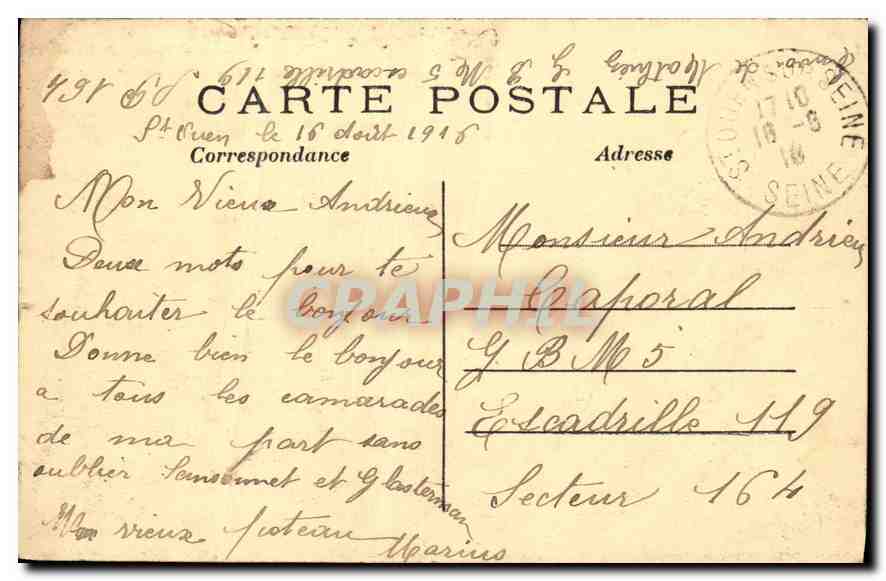 Envoi de Mathieu G B M 5 escadrille 119 S.P. 164
CARTE POSTALE
St Ouen le 16 Août 1916
Correspondance
Adresse
ST OUEN SEINE
17 10
16 - 8
16
SEINE
Mon Vieux Andrieux
Deux mots pour te
souhaiter le bonjour
Donne bien le bonjour
a tous les camarades
de ma part sans
oublier Sansonnet et Glasterman
Mon vieux poteau
Marius
Monsieur Andrieux
Caporal
G B M 5
Escadrille 119
Secteur 164
CPAPHIL